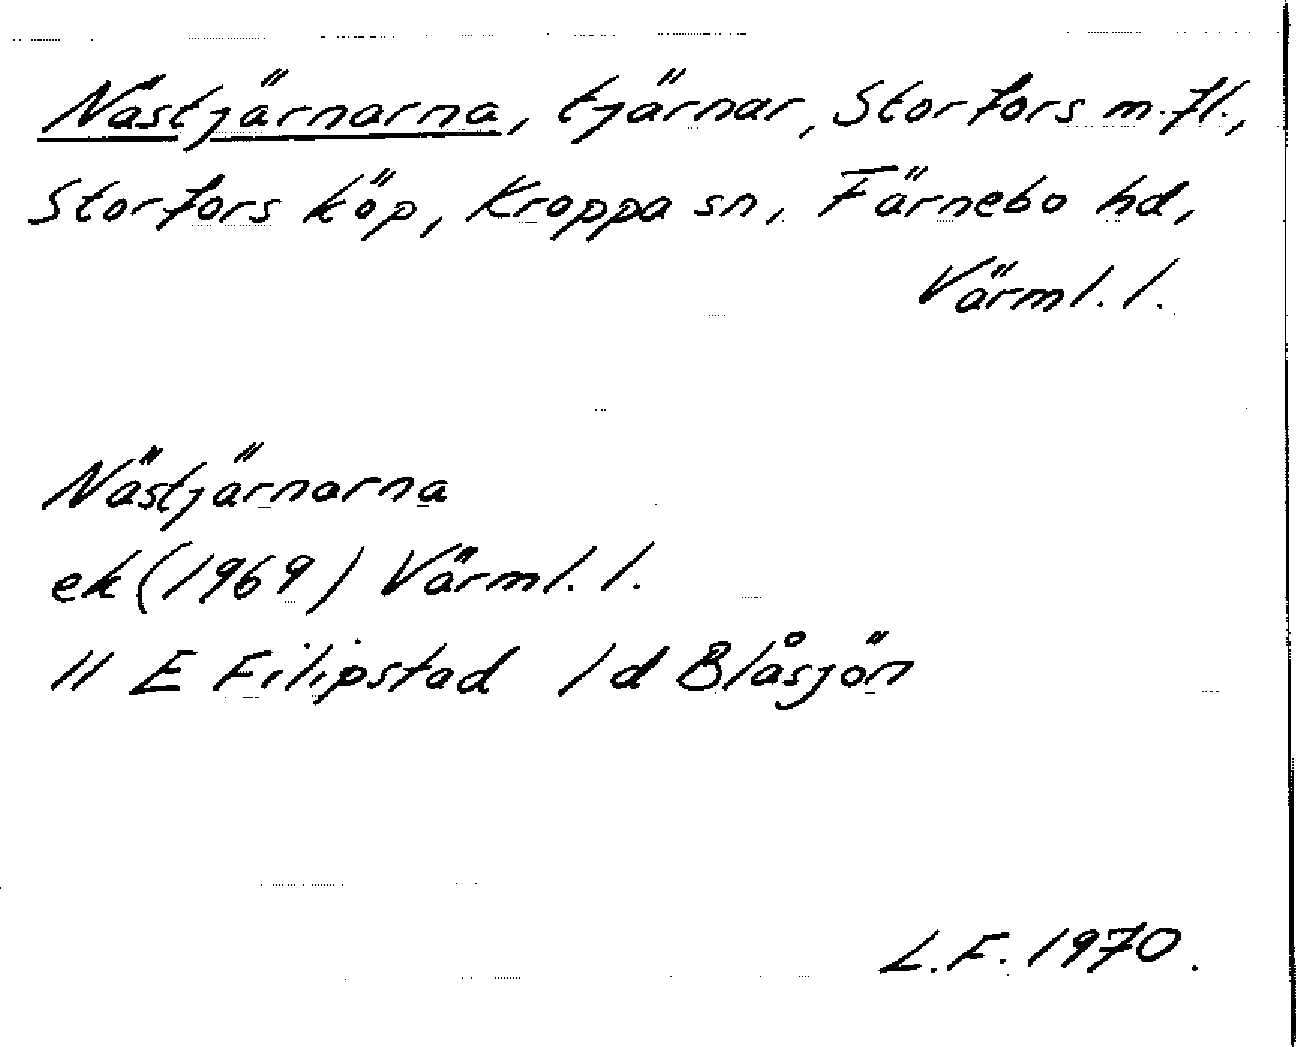 Nästjärnarna, tjärnar, Storfors m.fl.,
Storfors köp, Kroppa sn, Färnebo hd,
Värml. l.
Nästjärnarna
ek (1969) Värml. l.
11 E Filipstad 1d Blåsjön
L.F. 1970.